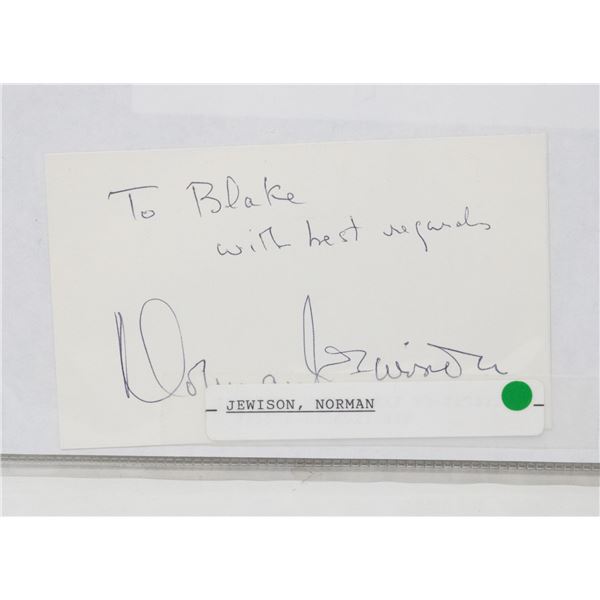 To Blake
with best regards
Norman Jewison
JEWISON, NORMAN